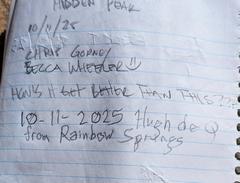 HIDDEN PEAK
10/11/25
CHRIS GODNEY
BECCA WHEELER
HOW'S IT GET BETTER THAN THIS ???
10-11-2025 Hugh de Q
from Rainbow Springs